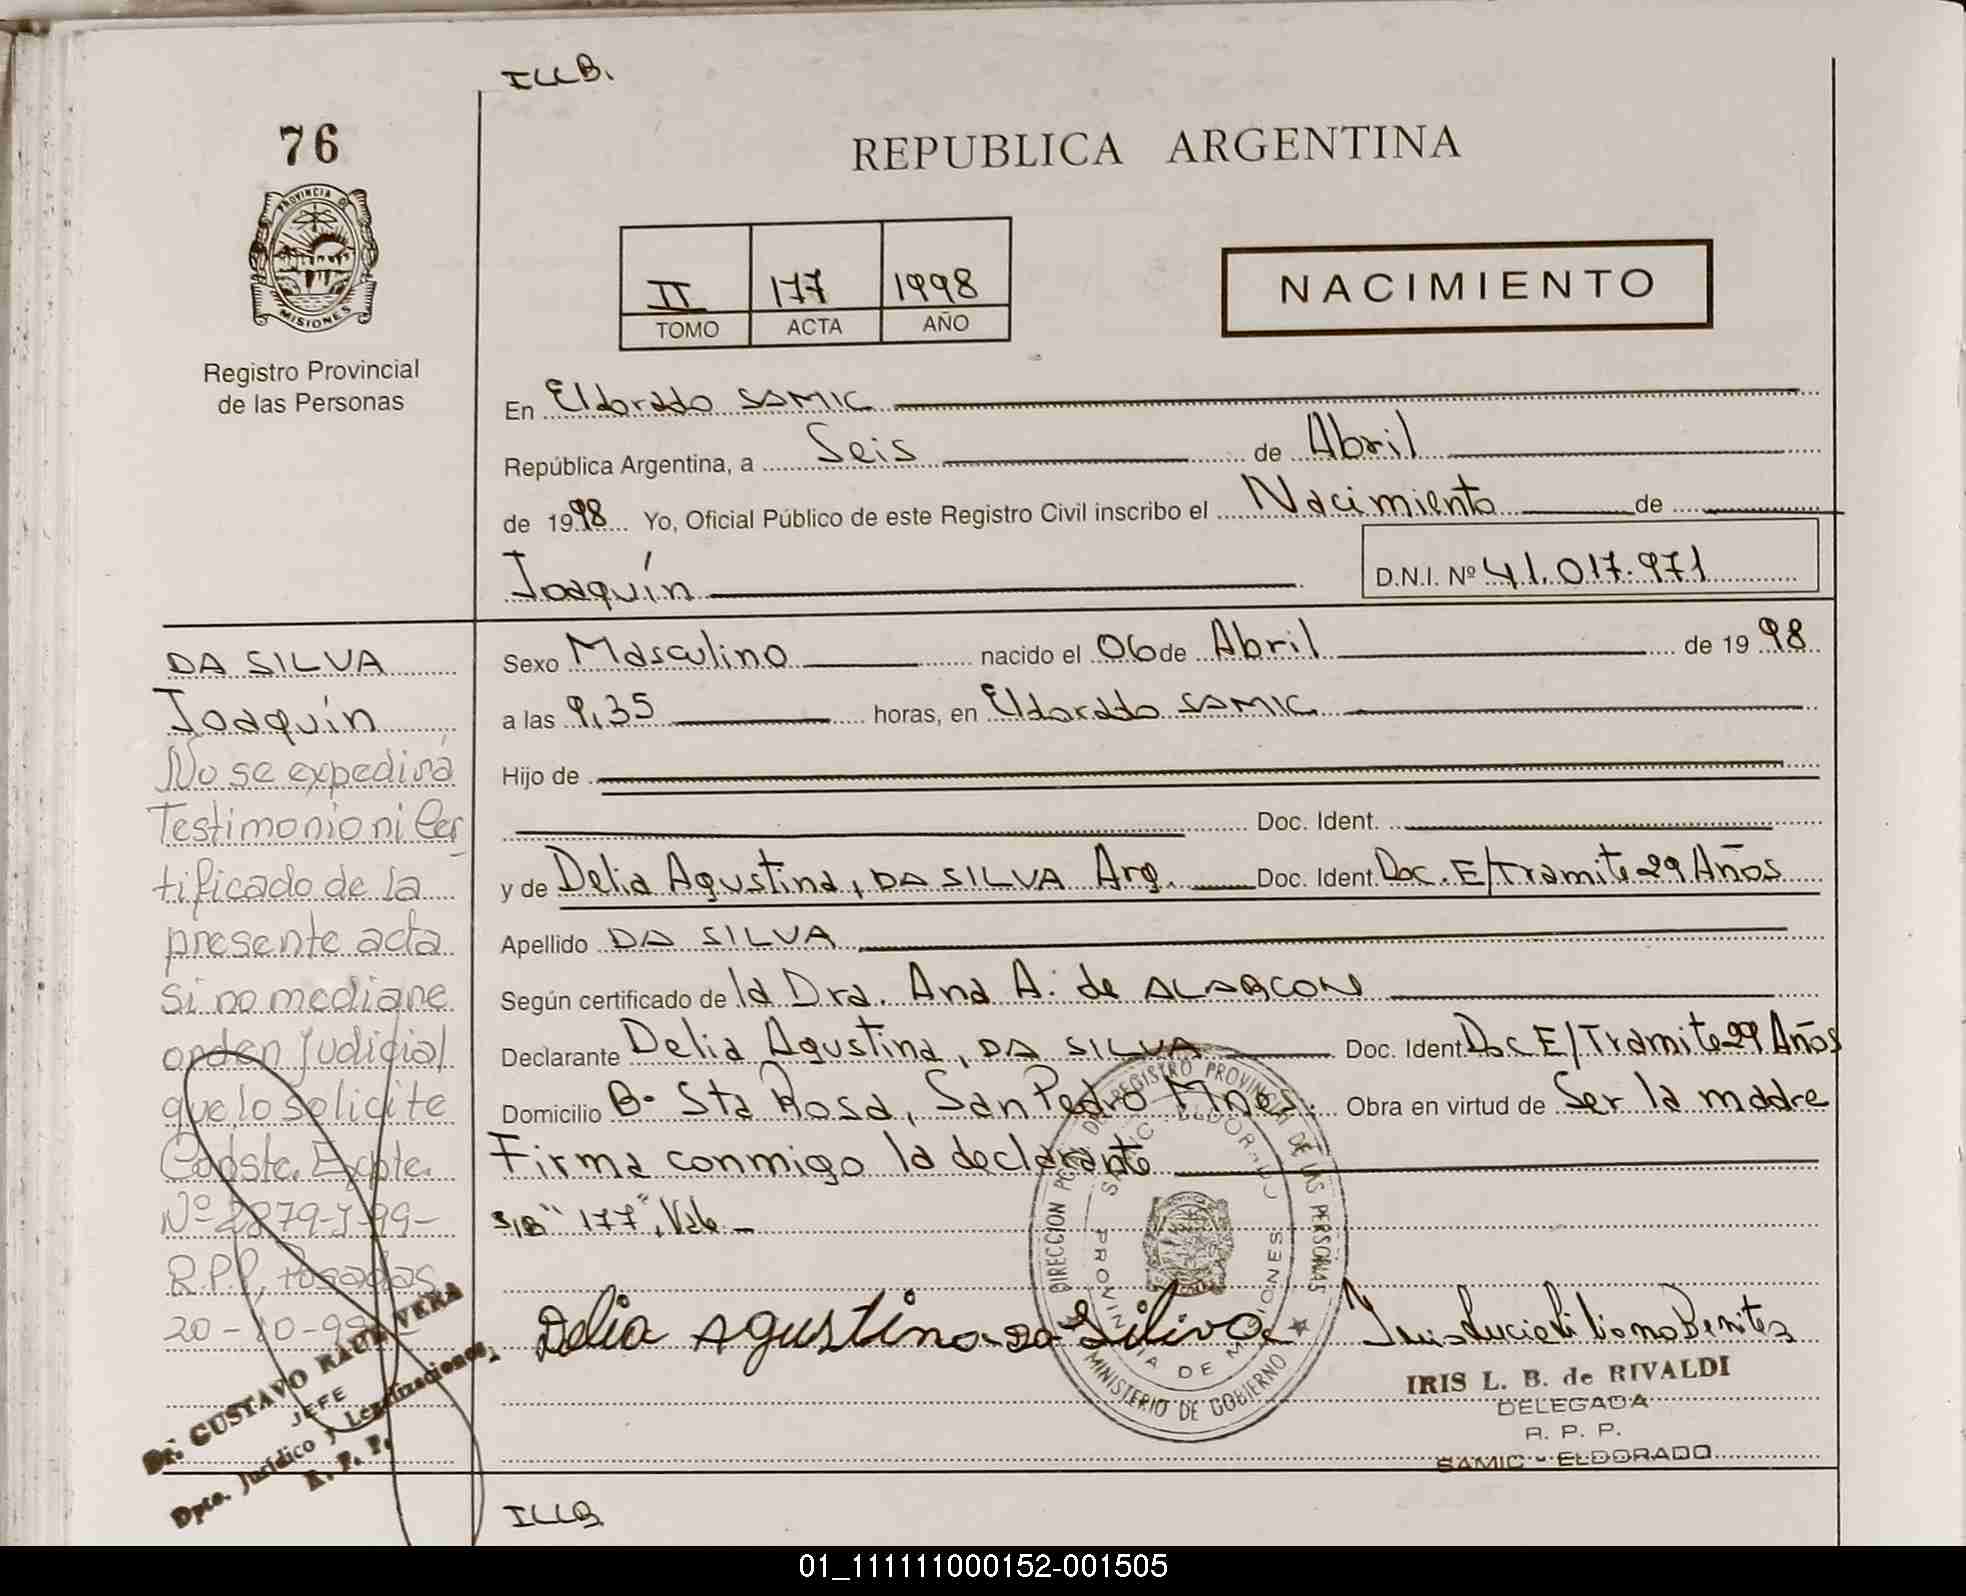 ILLB.
76
REPUBLICA ARGENTINA
PROVINCIA DE
MISIONES
II 177 1998
TOMO ACTA AÑO
NACIMIENTO
Registro Provincial
de las Personas
En Eldorado SAMIC
República Argentina, a Seis de Abril
de 1998 Yo, Oficial Público de este Registro Civil inscribo el Nacimiento de
Joaquín
D.N.I. Nº 41.017.971
DA SILVA
Joaquín
No se expedirá
Testimonio ni Cer
tificado de la
presente acta
si no mediane
orden judicial
que lo solicite
Expte.
Nº 2879-J-99-
R.P.P, Posadas
20-10-99
Dr. GUSTAVO RAUL VERA
JEFE
Dpto. Jurídico y Legalizaciones
R. P. P.
Sexo Masculino nacido el 06 de Abril de 1998
a las 9,35 horas, en Eldorado SAMIC
Hijo de
Doc. Ident.
y de Delia Agustina, DA SILVA Arg. Doc. Ident. Doc. E/tramite 29 Años
Apellido DA SILVA
Según certificado de la Dra. Ana A. de ALARCON
Declarante Delia Agustina, DA SILVA Doc. Ident Doc E/Tramite 29 Años
Domicilio Bº Sta Rosa, San Pedro Mnes. Obra en virtud de Ser la madre
Firma conmigo la declarante
S/B "177", Vale
DIRECCION DEL REGISTRO PROVINCIAL DE LAS PERSONAS
SAMIC ELDORADO
PROVINCIA DE MISIONES
MINISTERIO DE GOBIERNO
Delia Agustina da Silva
IRIS L. B. de RIVALDI
DELEGADA
R. P. P.
SAMIC - ELDORADO
ILLB
01_111111000152-001505